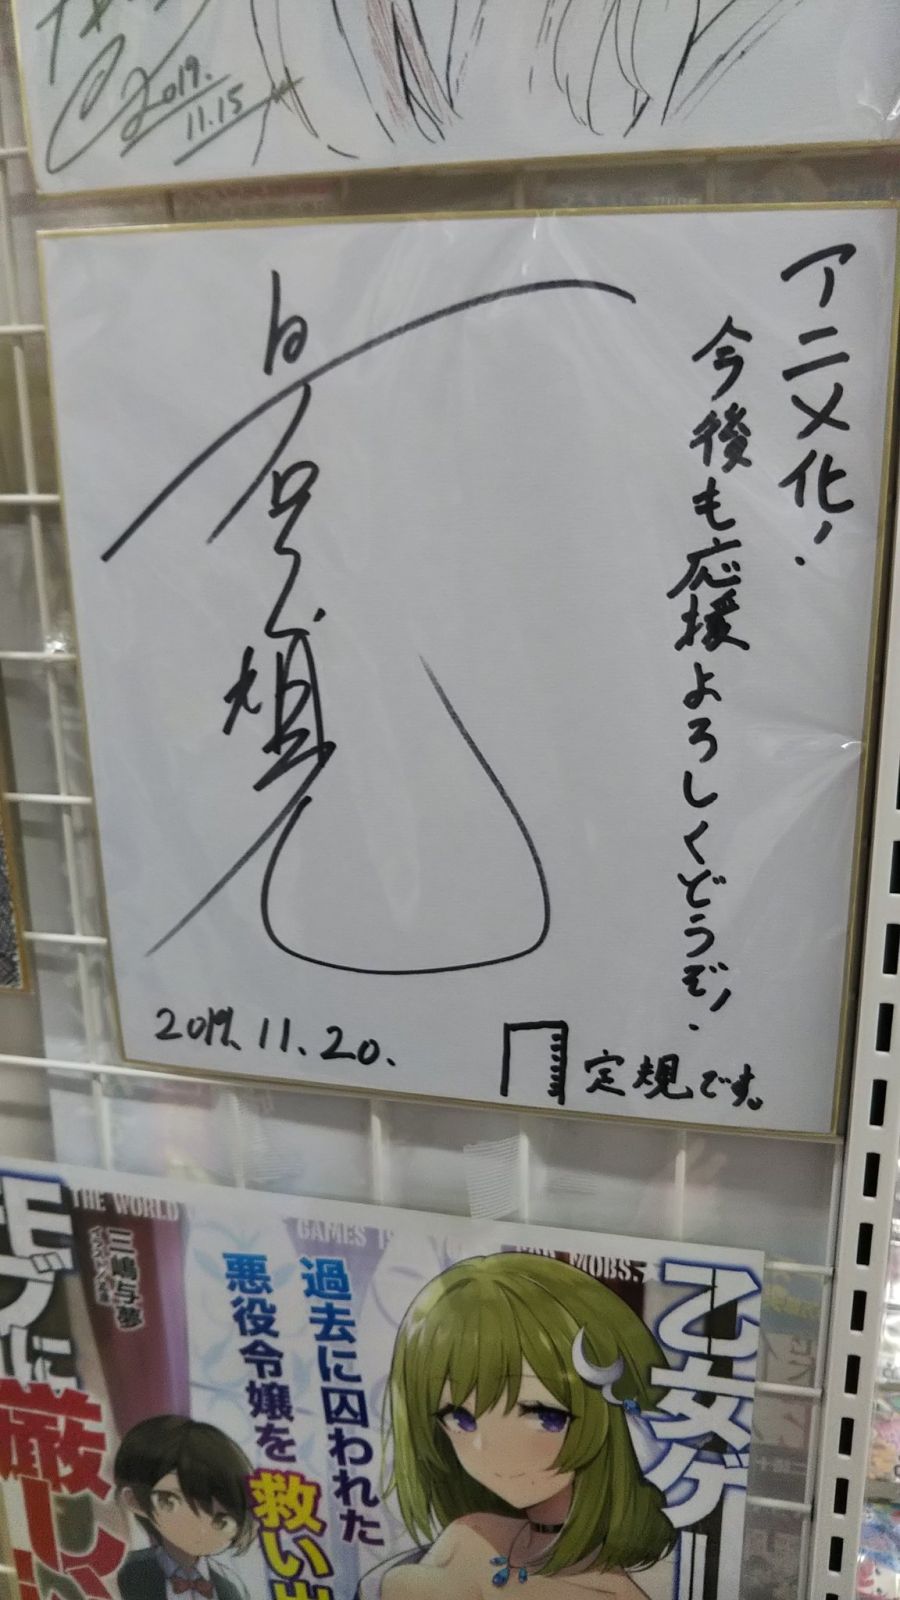 2019.
11.15
アニメ化!
今後も応援よろしくどうぞ!
2019.11.20.
定規です。
THE WORLD
GAMES
MOBS.★
乙女ゲー
モブに
厳し
過去に囚われた
悪役令嬢を
救い出
三嶋与夢
イラスト／孟達